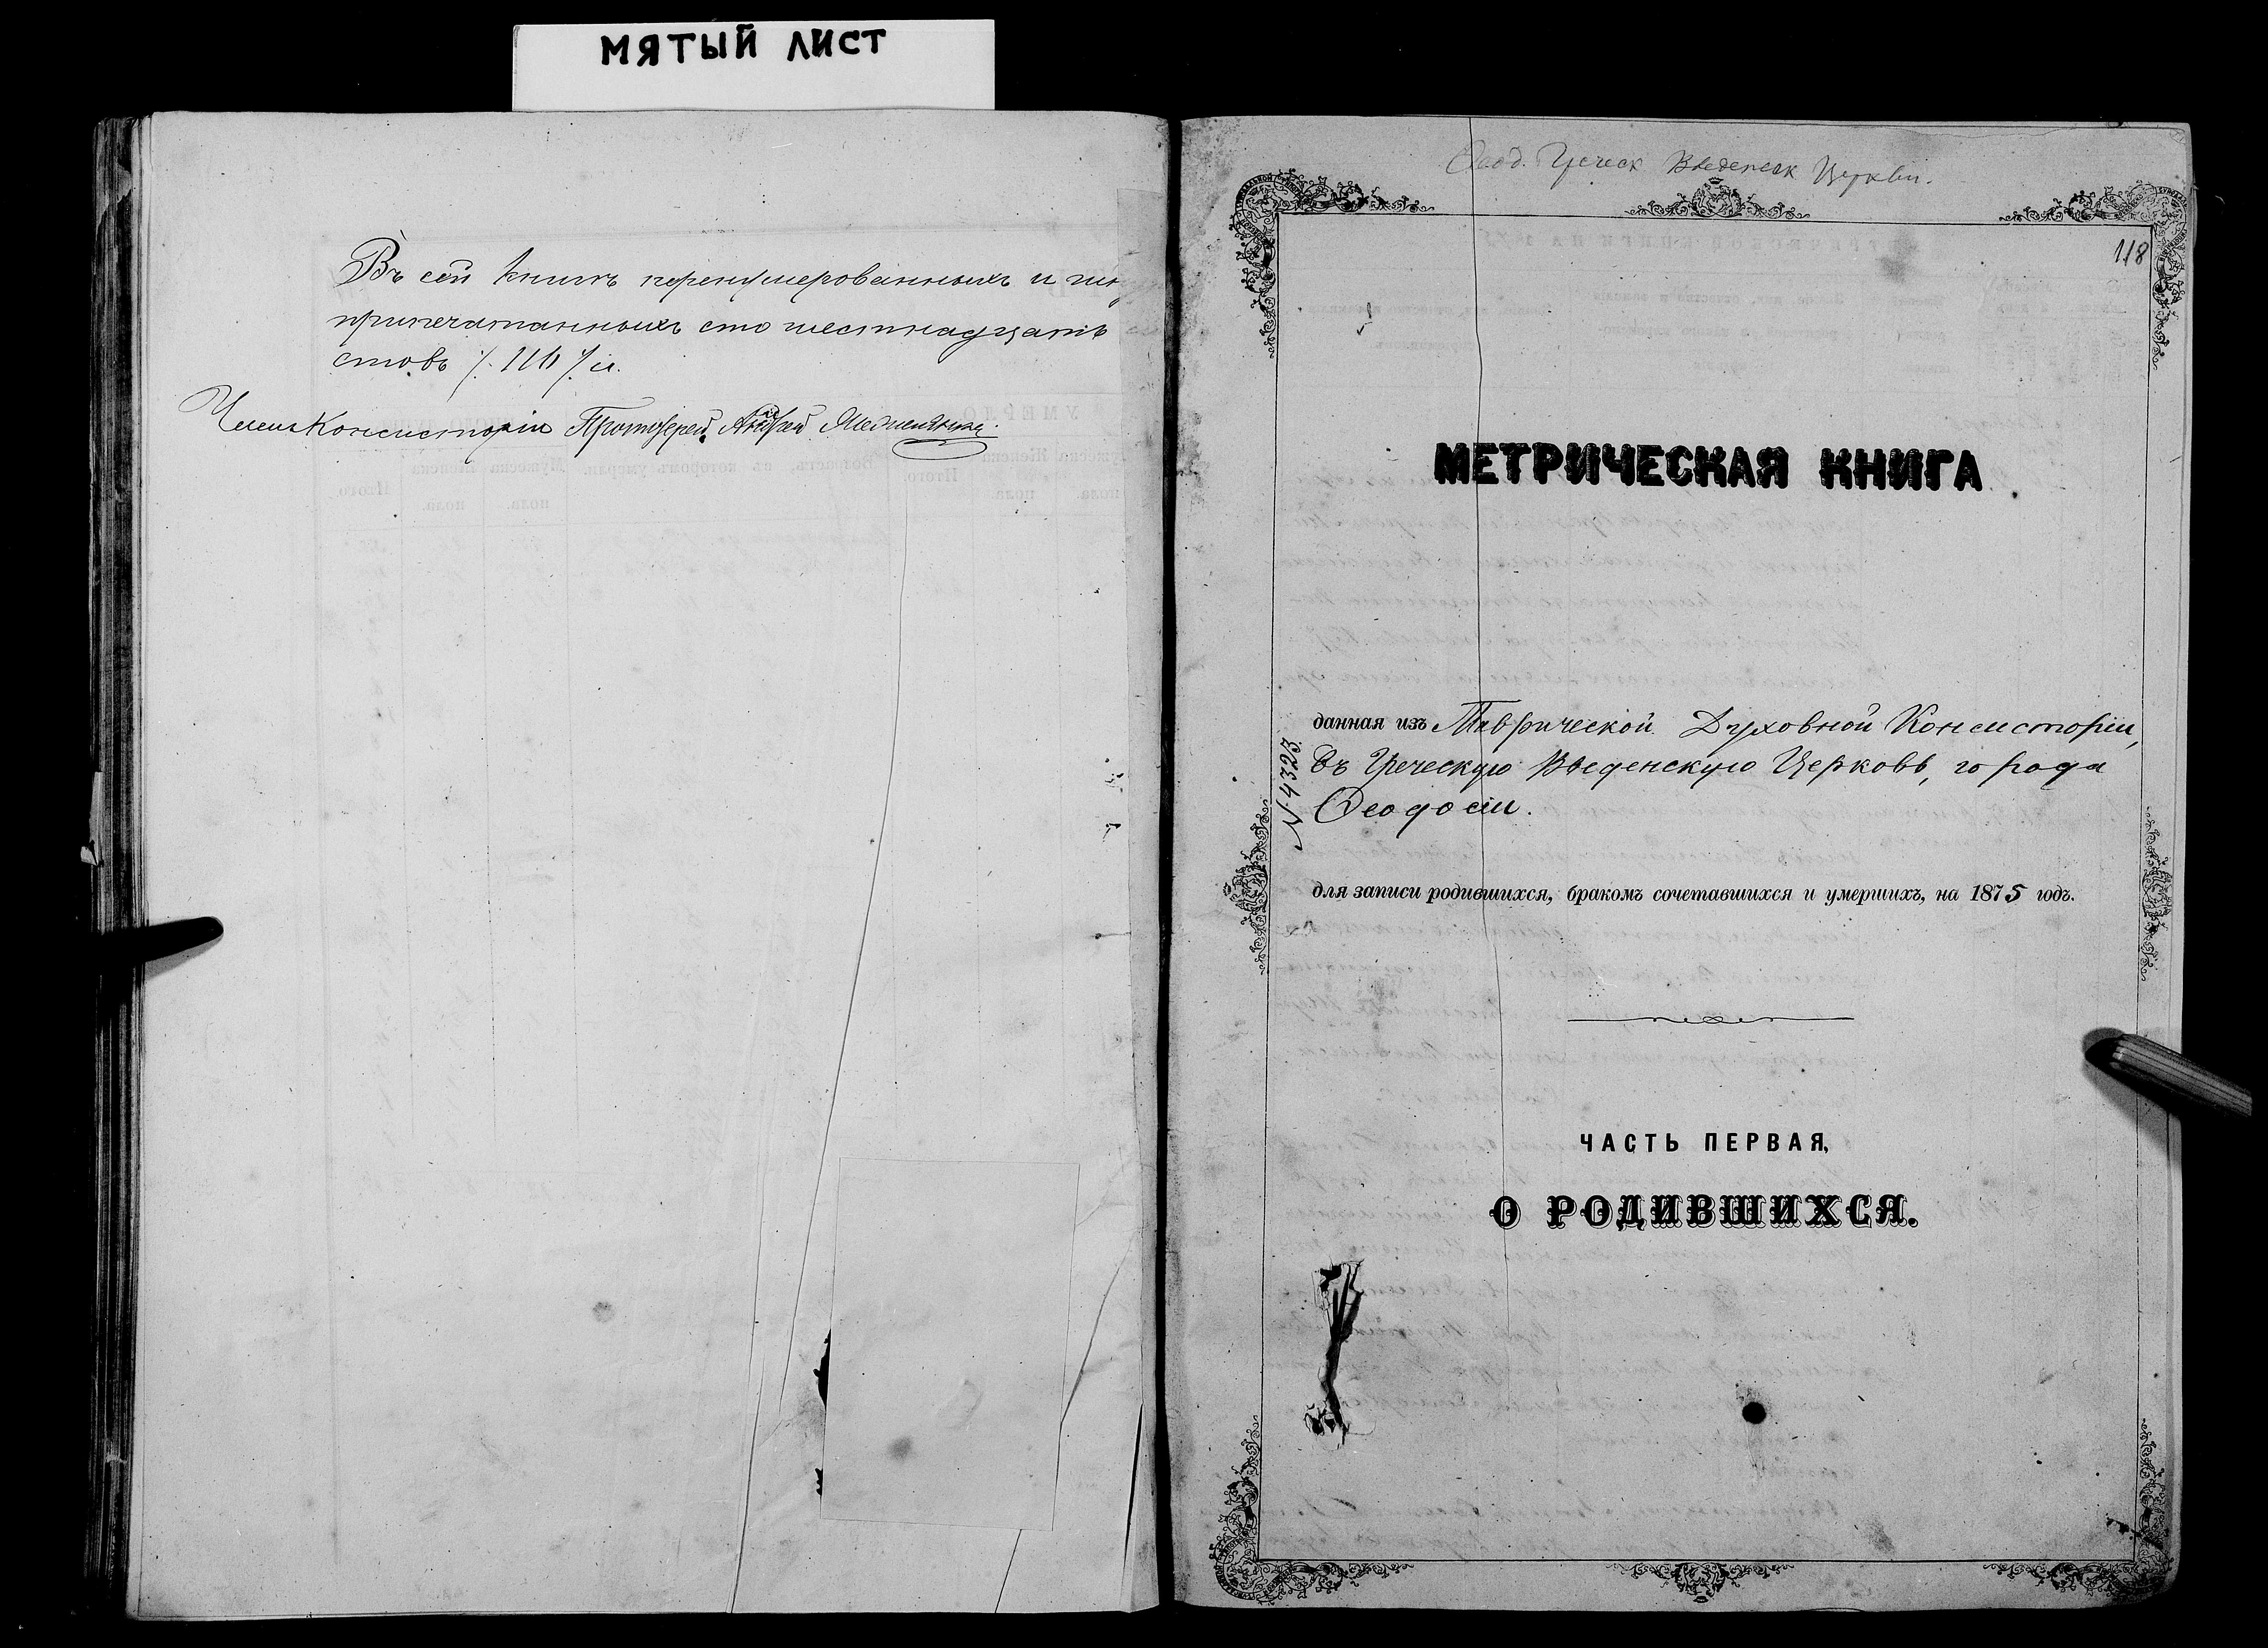 МЯТЫЙ ЛИСТ
Въ сей книгѣ перенумерованныхъ и шну
припечатанныхъ сто шестнадцать
стовъ /. 116 ./ л.
Членъ Консисторіи Протоіерей Андрей
Ѳеод. Греческ Введенск Церкви.
118
МЕТРИЧЕСКАЯ КНИГА
данная изъ Таврической Духовной Консисторіи,
въ Греческую Введенскую Церковь, города
Ѳеодосіи.
N 4323.
для записи родившихся, бракомъ сочетавшихся и умершихъ, на 1875 годъ.
ЧАСТЬ ПЕРВАЯ,
О РОДИВШИХСЯ.